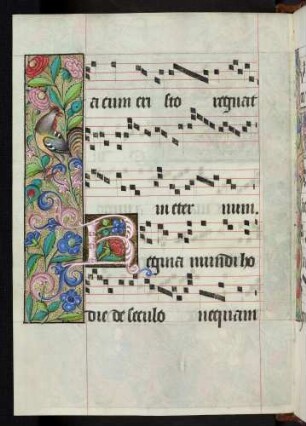 a cum cri sto regnat
in eter num.
Regina mundi ho
die de seculo nequam